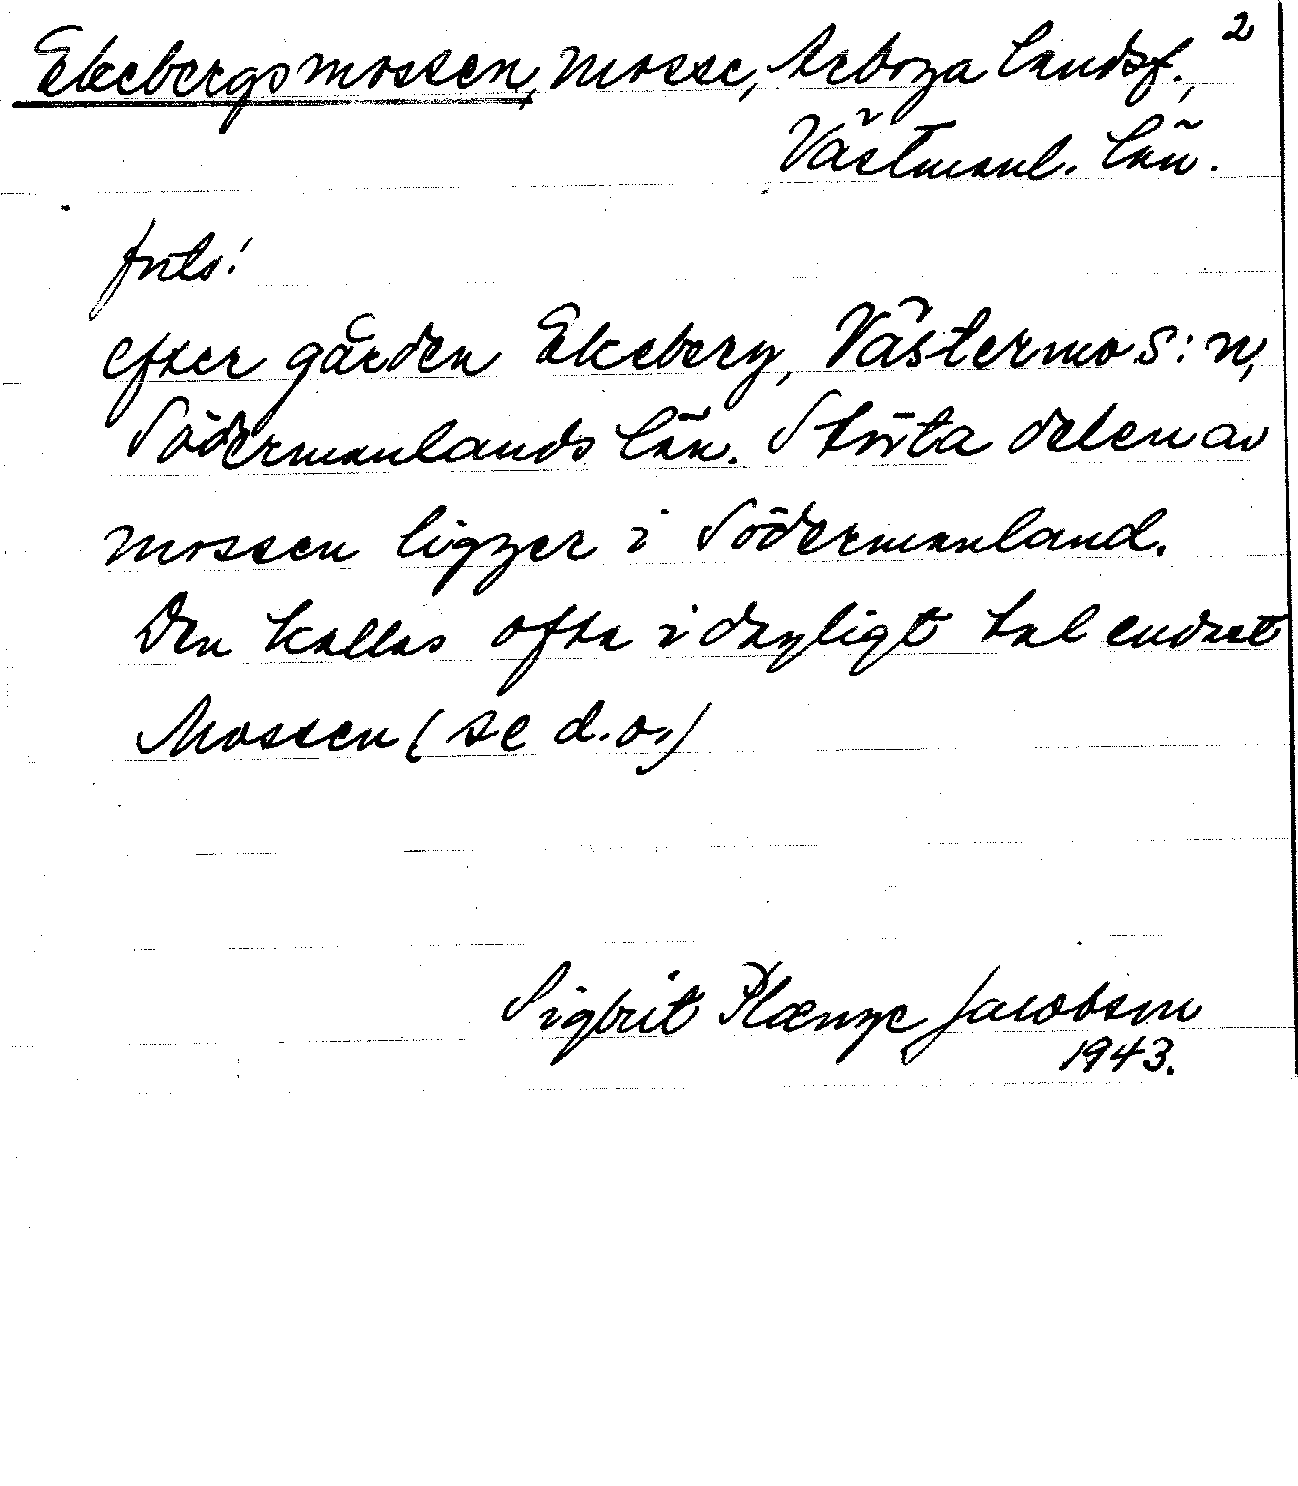 2
Ekebergsmossen, mosse, Arboga landsf.,
Västmanl. län.
forts:
efter gården Ekeberg, Västermo s:n,
Södermanlands län. Största delen av
mossen ligger i Södermanland.
Den kallas ofta i dagligt tal endast
Mossen (se d.o.,)
Sigbrit Plænge Jacobson
1943.